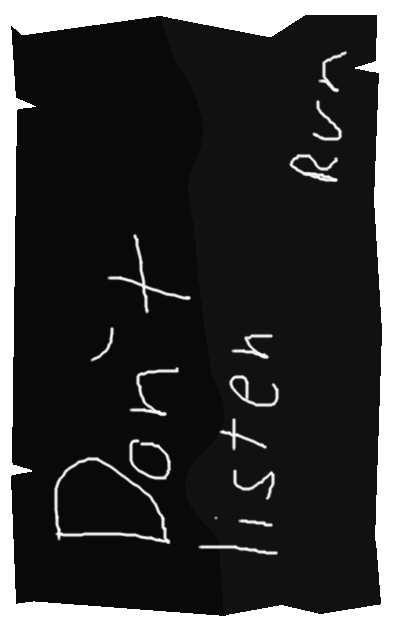 Don't
listen
Run